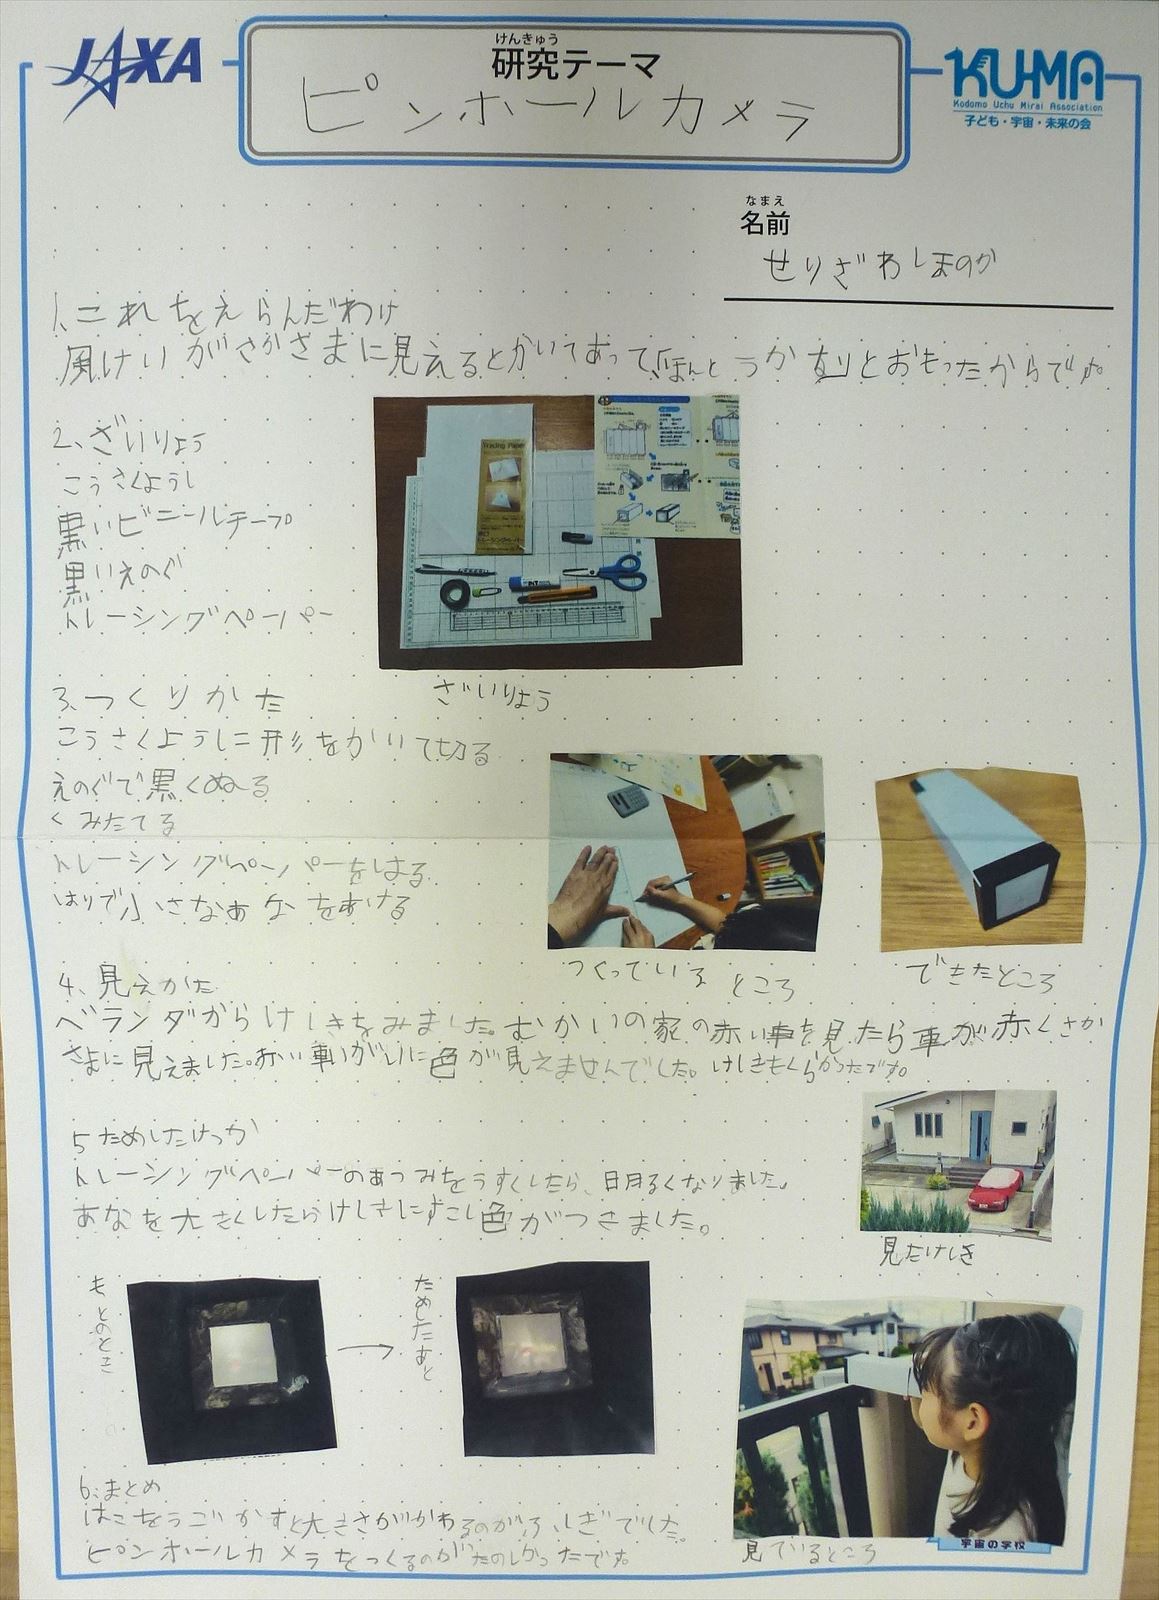 JAXA
けんきゅう
研究テーマ
ピンホールカメラ
KU-MA
Kodomo Uchu Mirai Association
子ども・宇宙・未来の会
なまえ
名前
せりざわしまのか
1、これをえらんだわけ
風けいがさかさまに見えるとかいてあって、ほんとうか知りとおもったからです。
2、ざいりょう
こうさくようし
黒いビニールテープ
黒いえのぐ
トレーシングペーパー
Tracing Paper
トレーシングペーパー
ざいりょう
3、つくりかた
こうさくようしに形をかいて切る
えのぐで黒くぬる
くみたてる
トレーシングペーパーをはる
はりで小さなあなをあける
つくっているところ
できたところ
4、見えかた
ベランダからけしきをみました。むかいの家の赤い車を見たら車が赤くさか
さまに見えました。赤い車いがいに色が見えませんでした。けしきもくらかったです。
5ためしたけっか
トレーシングペーパーのあつみをうすくしたら、明るくなりました。
あなを大きくしたらけしきにすこし色がつきました。
見たけしき
もとのとき
ためしたあと
6、まとめ
はこをうごかすと大きさがかわるのがふしぎでした。
ピンホールカメラをつくるのがたのしかったです。
見ているところ
宇宙の学校